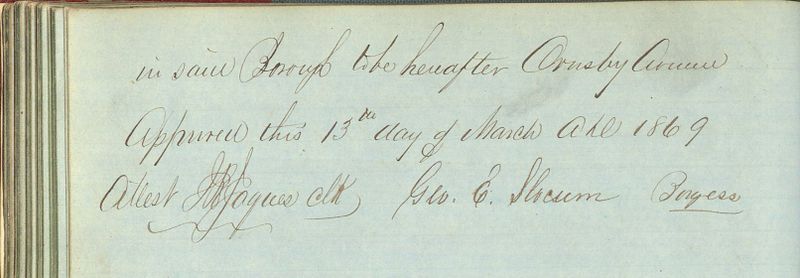 in said Borough to be hereafter Ormsby Avenue
Approved this 13th day of March A D 1869
Attest J B Jaques Clk Geo. E. Slocum Burgess